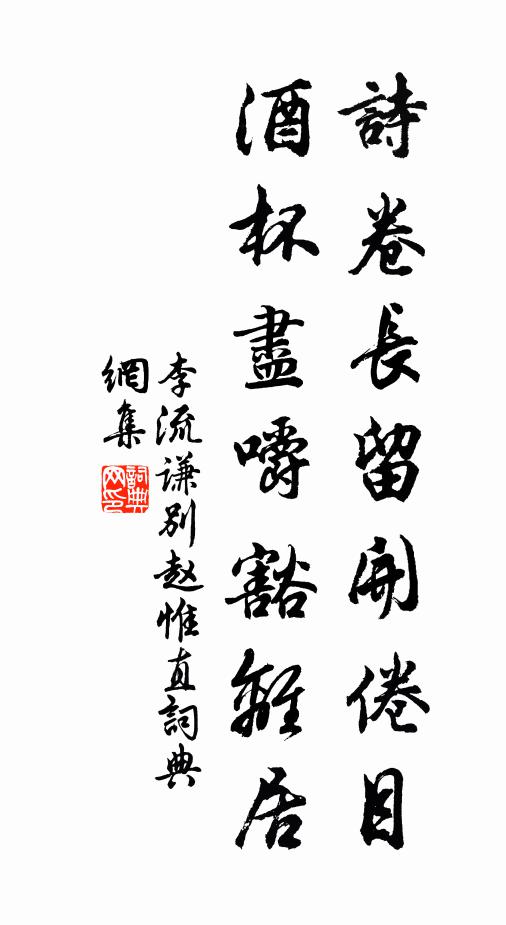 詩卷長留開倦目
酒杯盡嚼豁離居
李流謙别赵惟直詞典
網集
詞典网印